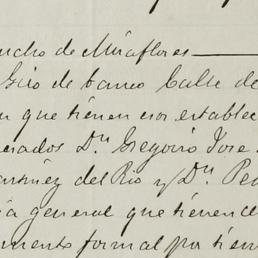 ncho de Miraflores
Giro de banco Calle de
n que tienen esos establec
esados Dn Gregorio Jose
artinez del Rio y Dn Pe
ia general que tienen de
mento formal por tiem